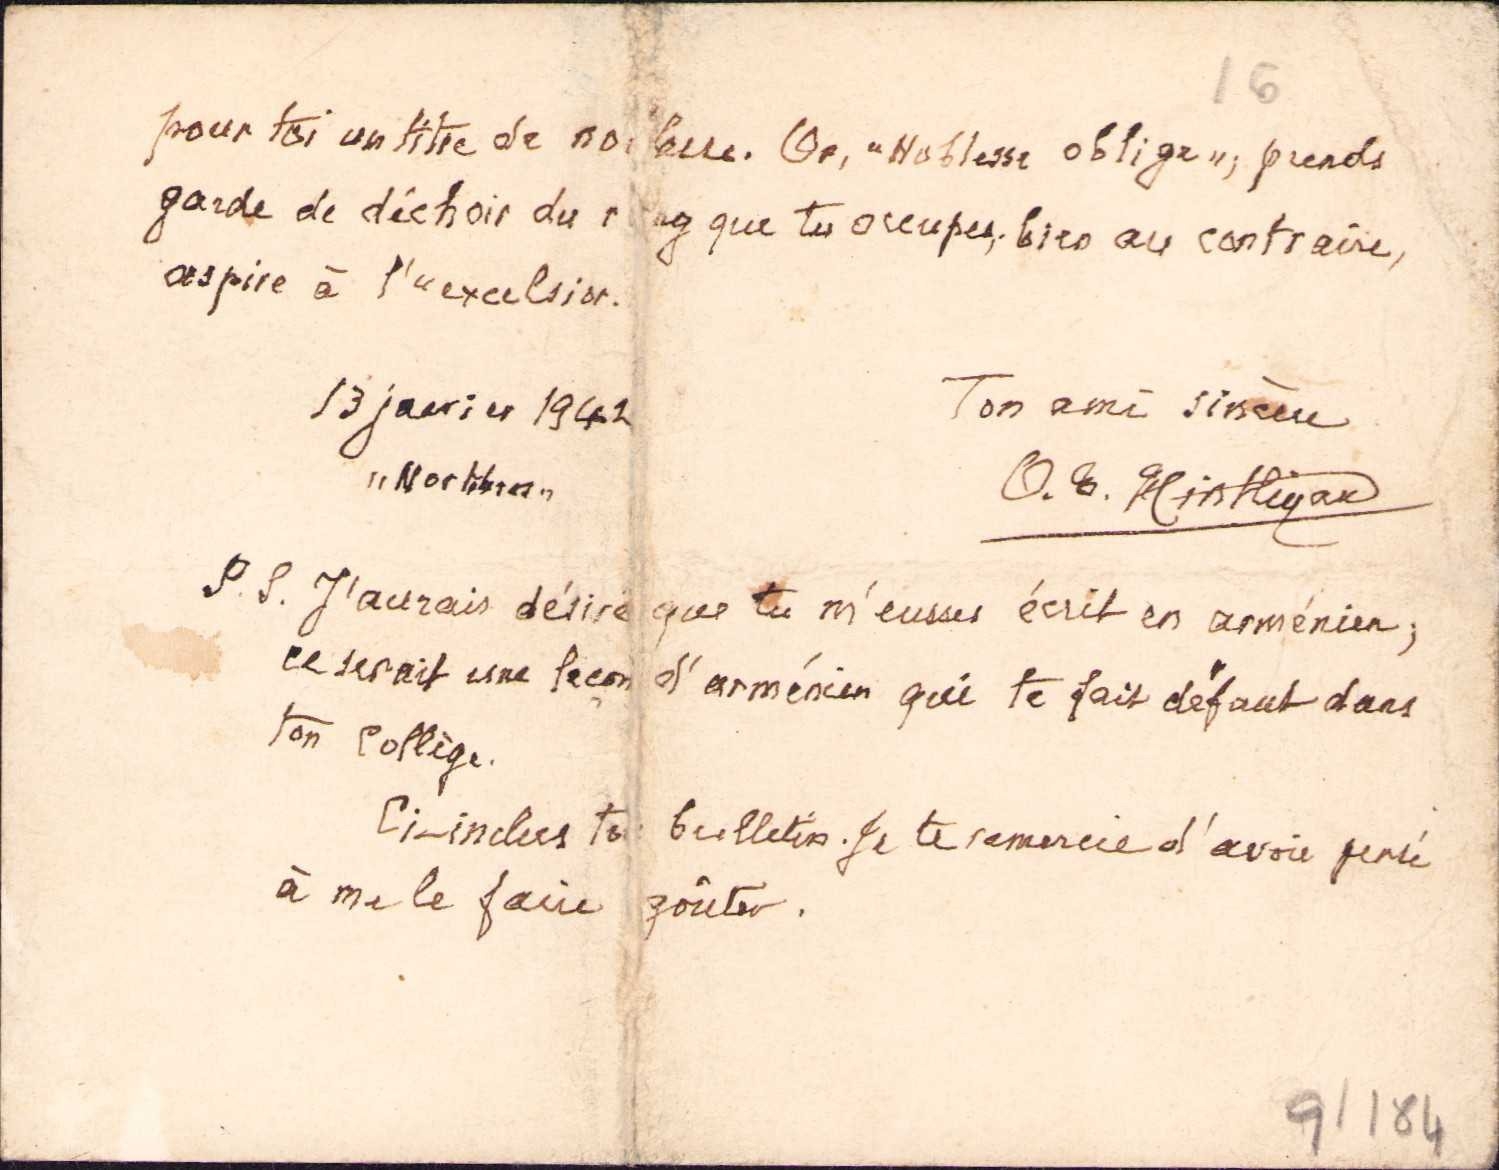 16
pour toi un titre de noblesse. Or, "Noblesse oblige"; prends
garde de déchoir du rang que tu occupes, bien au contraire,
aspire à l'"excelsior.
13 janvier 1942
Ton ami sincère
O. E.
P. S. J'aurais désiré que tu m'eusses écrit en arménien;
ce serait une leçon d'arménien qui te fait défaut dans
ton collège.
Ci-inclus ton bulletin. Je te remercie d'avoir pensé
à me le faire goûter.
9/184